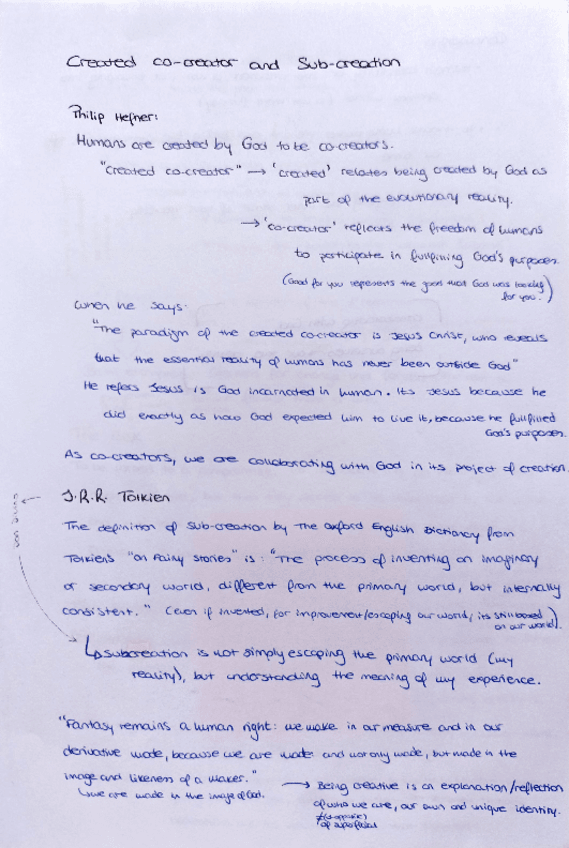 Created co-creator and Sub-creation
Philip Hefner:
Humans are created by God to be co-creators.
"Created co-creator" → 'created' relates being created by God as
part of the evolutionary reality.
→ 'co-creator' reflects the freedom of humans
to participate in fullfilling God's purposes.
(Good for you represents the good that God was looking
for you.)
When he says:
"The paradigm of the created co-creator is Jesus Christ, who reveals
that the essential reality of humans has never been outside God"
He refers Jesus is God incarnated in human. Its Jesus because he
did exactly as how God expected him to live it, because he fullfilled
God's purposes.
As co-creators, we are collaborating with God in its project of creation.
J.R.R. Tolkien
The definition of sub-creation by the Oxford English Dictionary from
Tolkien's "On Fairy Stories" is: "The process of inventing an imaginary
or secondary world, different from the primary world, but internally
consistent." (even if invented, for improvement/escaping our world, its still based
on our world).
↳ subcreation is not simply escaping the primary world (my
reality), but understanding the meaning of my experience.
"Fantasy remains a human right: we make in our measure and in our
derivative mode, because we are made: and not only made, but made in the
image and likeness of a Maker."
↳ we are made in the image of God.
→ Being creative is an explanation/reflection
of who we are, our own and unique identity.
≠ (opposite)
of superficial